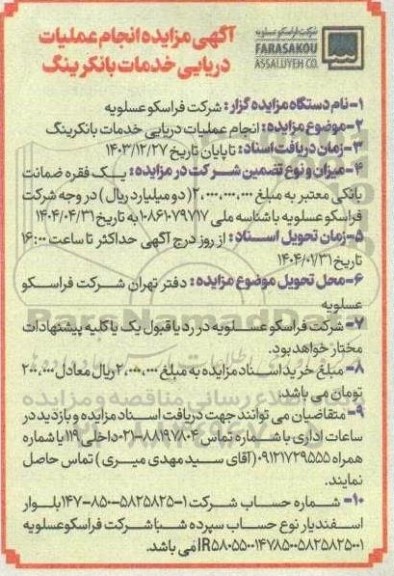 آگهی مزایده انجام عملیات
دریایی خدمات بانکرینگ
شرکت فراسکو عسلویه
FARASAKOU
ASSALUYEH CO.
۱- نام دستگاه مزایده گزار: شرکت فراسکو عسلویه
۲- موضوع مزایده: انجام عملیات دریایی خدمات بانکرینگ
۳- زمان دریافت اسناد: تا پایان تاریخ ۱۴۰۳/۱۲/۲۷
۴- میزان و نوع تضمین شرکت در مزایده: یک فقره ضمانت
بانکی معتبر به مبلغ ۲٫۰۰۰٫۰۰۰٫۰۰۰ (دو میلیارد ریال) در وجه شرکت
فراسکو عسلویه با شناسه ملی ۱۰۸۶۱۰۷۹۷۱۷ به تاریخ ۱۴۰۴/۰۴/۳۱
۵- زمان تحویل اسناد: از روز درج آگهی حداکثر تا ساعت ۱۶:۰۰
تاریخ ۱۴۰۴/۰۱/۳۱
۶- محل تحویل موضوع مزایده: دفتر تهران شرکت فراسکو
عسلویه
۷- شرکت فراسکو عسلویه در رد یا قبول یک یا کلیه پیشنهادات
مختار خواهد بود.
۸- مبلغ خرید اسناد مزایده به مبلغ ۲٫۰۰۰٫۰۰۰ ریال معادل ۲۰۰٫۰۰۰
تومان می باشد.
۹- متقاضیان می توانند جهت دریافت اسناد مزایده و بازدید در
ساعات اداری با شماره تماس ۸۸۱۹۷۸۰۴-۰۲۱ داخلی ۱۱۹ یا شماره
همراه ۰۹۱۲۱۷۲۹۵۵۵ (آقای سید مهدی میری) تماس حاصل
نمایند.
۱۰- شماره حساب شرکت ۱-۵۸۲۵۸۲۵-۸۵۰-۱۴۷ بلوار
اسفندیار نوع حساب سپرده شبا شرکت فراسکو عسلویه
IR۵۸۰۵۵۰۰۱۴۷۸۵۰۰۵۸۲۵۸۲۵۰۰۱ می باشد.
ParsNamadData